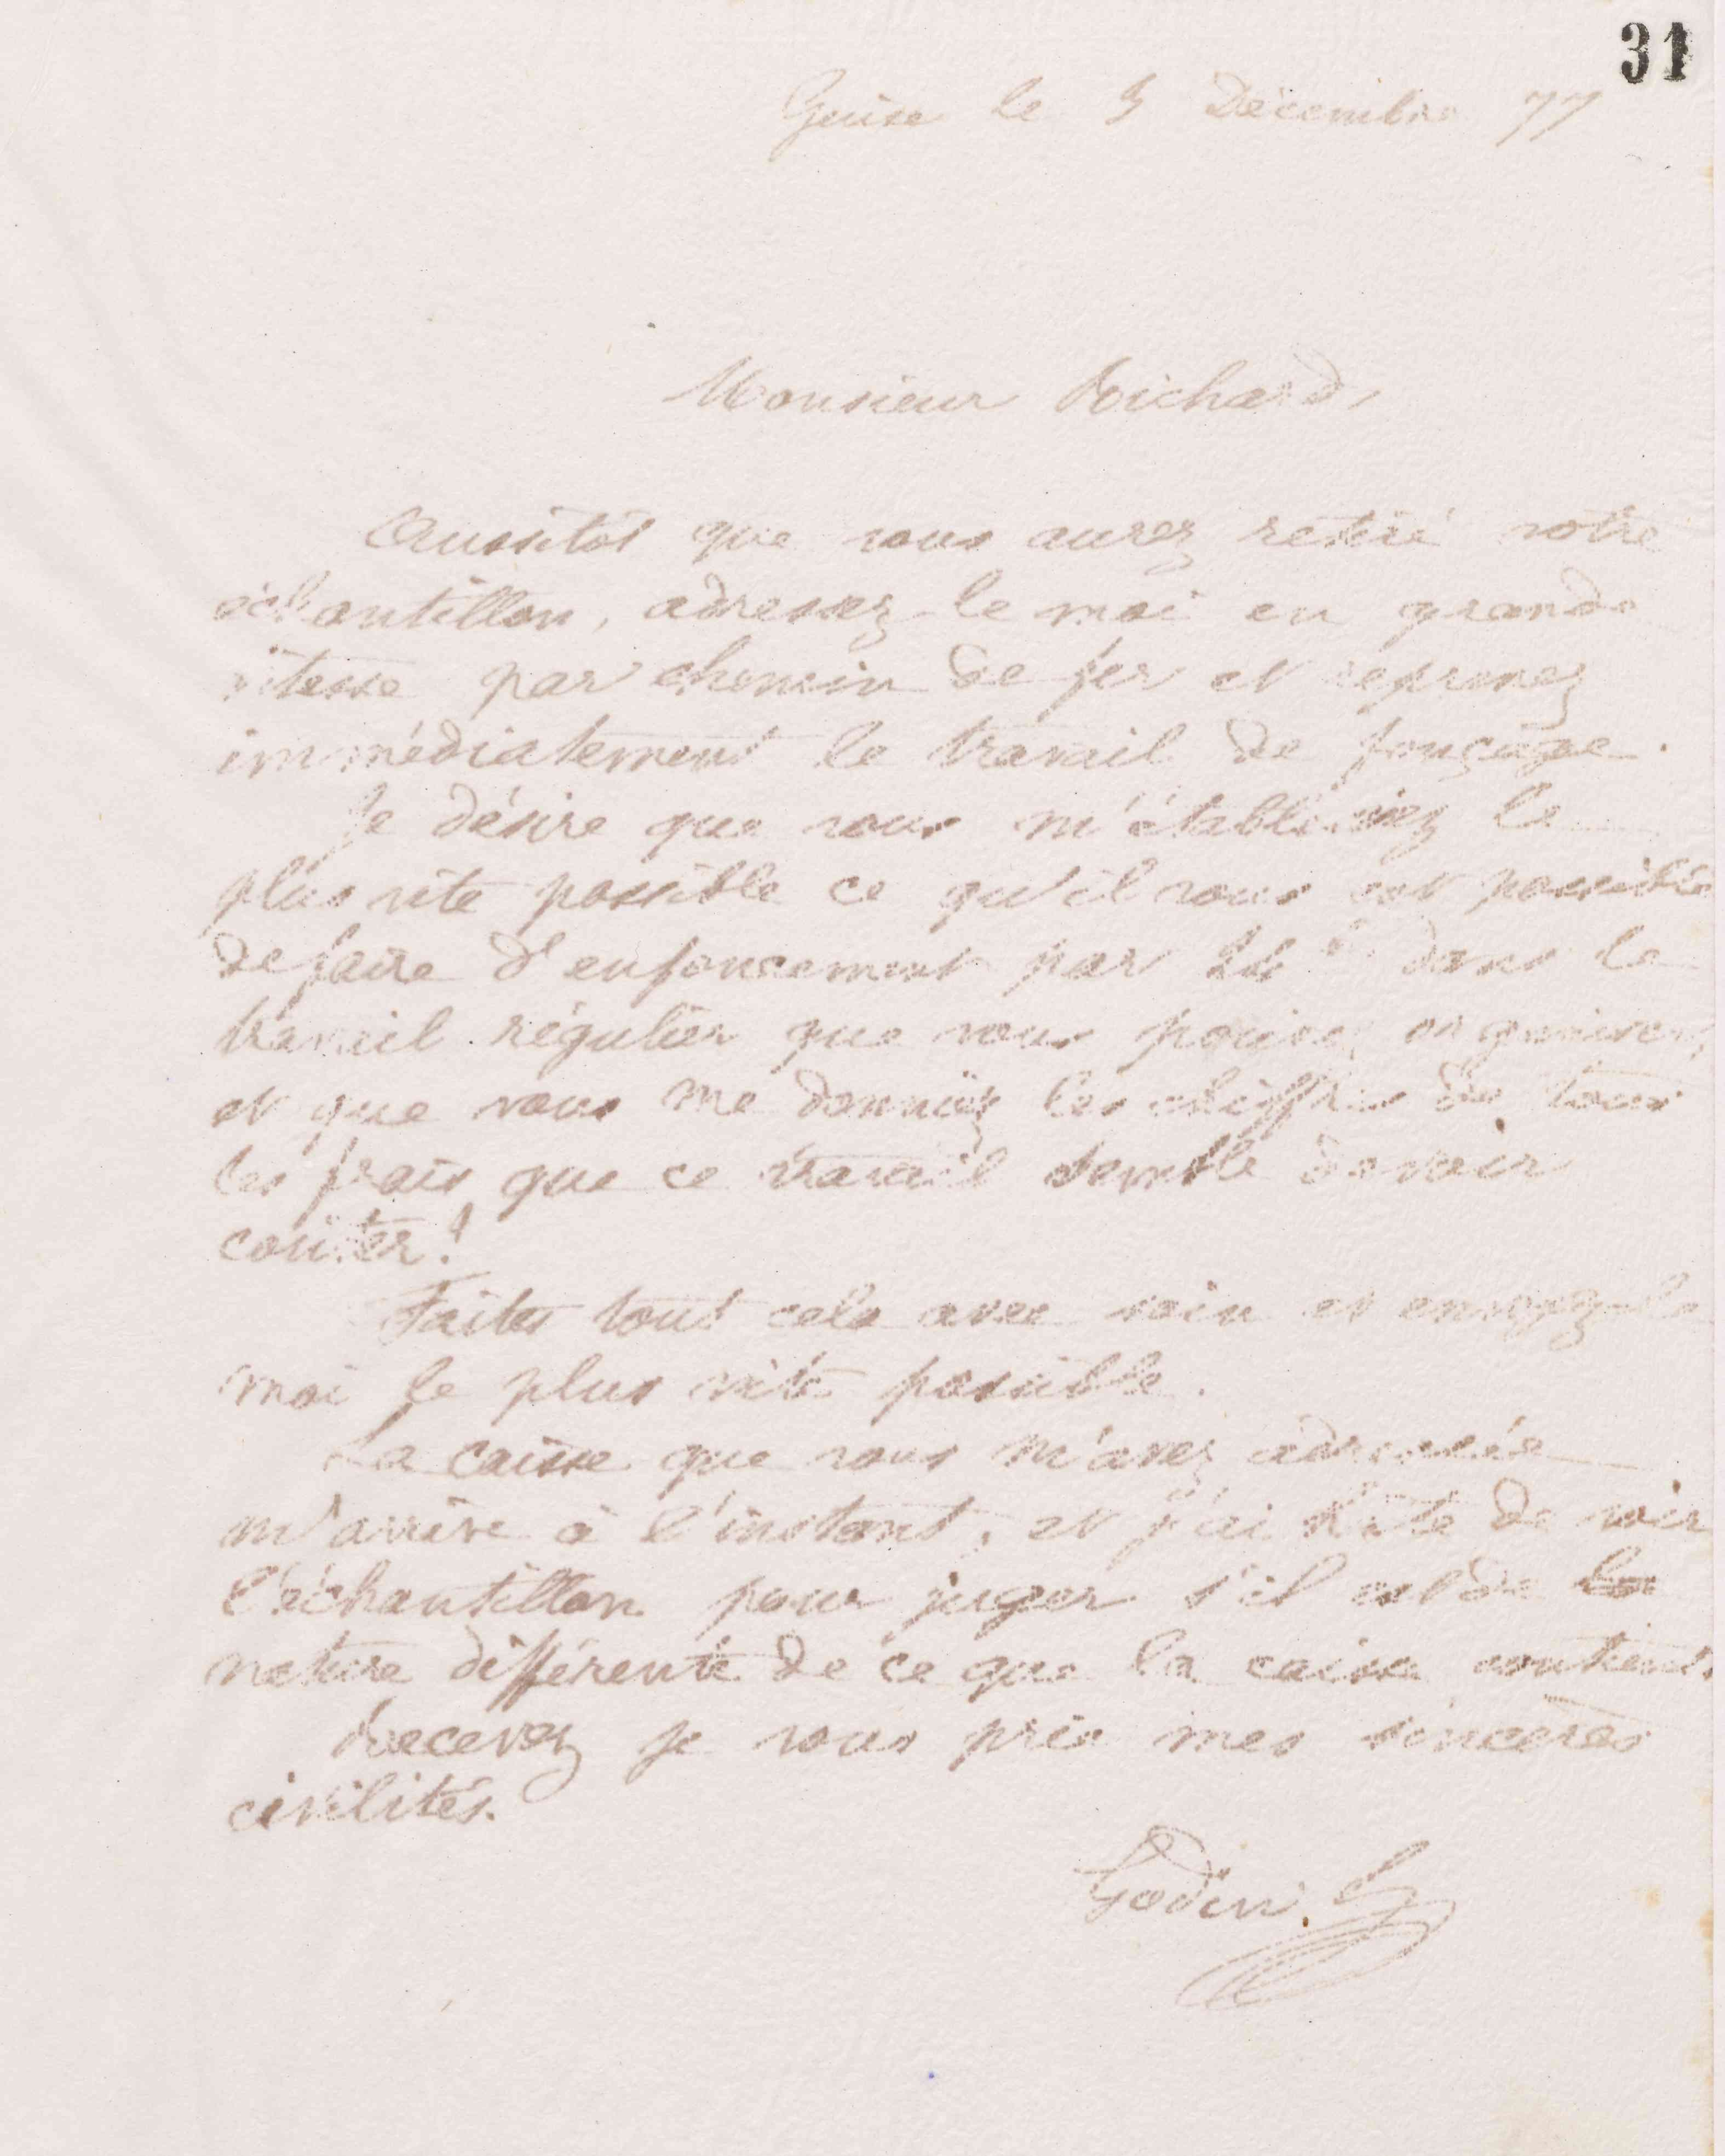 31
Guise le 5 Décembre 77
Monsieur Richard,
Aussitôt que vous aurez retiré votre
échantillon, adressez-le moi en grande
vitesse par chemin de fer et reprenez
immédiatement le travail de fonçage.
Je désire que vous m'établissiez le
plus vite possible ce qu'il vous est possible
de faire d'enfoncement par 24 h dans le
travail régulier que vous pouvez organiser
et que vous me donniez les chiffres de tous
les frais que ce travail semble devoir
coûter!
Faites tout cela avec soin et envoyez-le
moi le plus vite possible.
La caisse que vous m'avez adressée
m'arrive à l'instant, et j'ai hâte de voir
l'échantillon pour juger s'il est de la
nature différente de ce que la caisse contient.
Recevez je vous prie mes sincères
civilités.
Godin